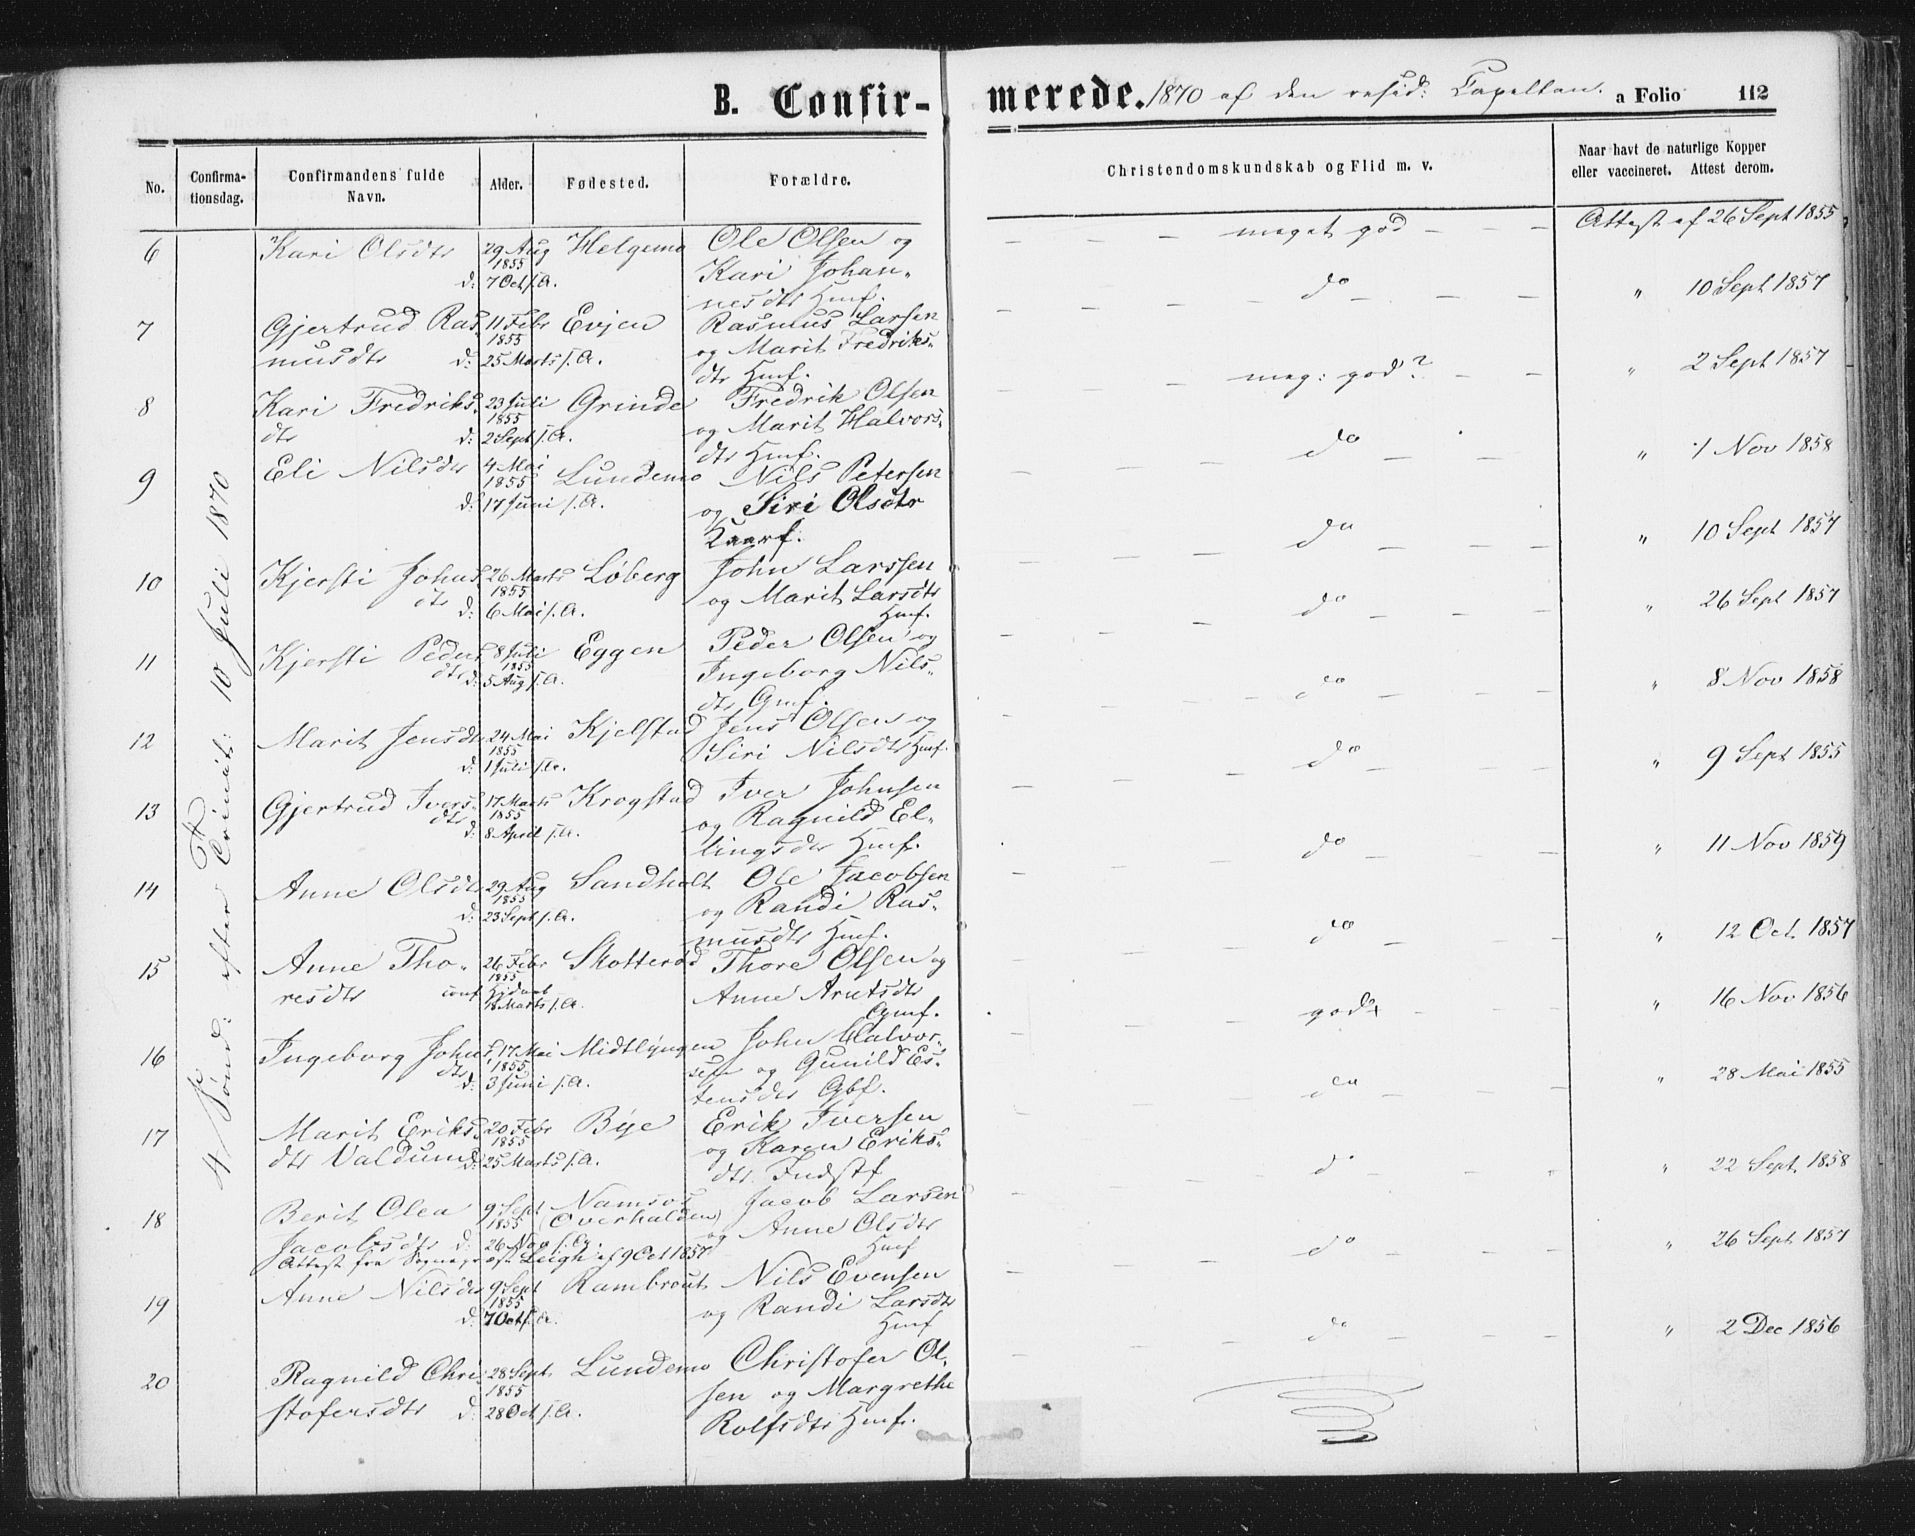 B. Confir-merede. 1870 af den resid: Capellan. a Folio 112
No. Confirma-tionsdag. Confirmandens fulde Navn. Alder. Fødested. Forældre. Christendomskundskab og Flid m. v. Naar havt de naturlige Kopper eller vaccineret. Attest derom.
4 Sønd: efter Trinit: 10 Juli 1870
6 Kari Olsdtr 29 Aug Helgemo Ole Olsen og meget god Attest af 26 Sept 1855
1855 Kari Johan-
d: 7 Oct s.A. nesdtr Hmf.
7 Gjertrud Ras 11 Febr Evjen Rasmus Larsen do " 10 Sept 1857
1855 og Marit Fredriks-
musdtr d: 25 Marts s.A. dtr Hmf.
8 Kari Fredriks 23 Juli Grinde Fredrik Olsen meg: god? " 2 Sept 1857
1855 og Marit Halvors-
dtr d: 2 Sept s.A. dtr Hmf.
9 Eli Nilsdtr 4 Mai Lundemo Nils Petersen do " 1 Nov 1858
1855
d: 17 Juni s.A. og Siri Olsdtr
Kaarf.
10 Kjersti Johns 26 Marts Løberg John Larssen do " 10 Sept 1857
dtr 1855 og Marit Larsdtr
d: 6 Mai s.A. Hmf.
11 Kjersti Peders 8 Juli Eggen Peder Olsen og do " 26 Sept 1857
dtr 1855 Ingeborg Nils-
d: 5 Aug s.A. dtr Gmf.
12 Marit Jensdtr 24 Mai Kjelstad Jens Olsen og do " 8 Nov 1858
1855 Siri Nilsdtr Hmf.
d: 1 Juli s.A.
13 Gjertrud Ivers 17 Marts Krogstad Iver Johnsen do " 9 Sept 1855
dtr 1855 og Ragnild El-
d: 8 April s.A. lingsdtr Hmf.
14 Anne Olsdtr 29 Aug Sandholt Ole Jacobsen do " 11 Nov 1859
1855 og Randi Ras-
d: 23 Sept s.A. musdtr Hmf.
15 Anne Tho- 26 Febr Skotterød Thore Olsen og do " 12 Oct 1857
1855
resdtr conf Hjdaab Anne Arntsdtr
18 Marts s.A. Gmf.
16 Ingeborg Johns 17 Mai Midtlyngen John Halvor- god " 16 Nov 1856
dtr 1855 sen og Gunild Es-
d: 3 Juni s.A. tensdtr Gbf.
17 Marit Eriks 20 Febr Bye Erik Iversen do " 28 Mai 1855
1855 og Karen Eriks-
dtr Valdum d: 25 Marts s.A. dtr. Indstf
18 Berit Olea 9 Sept Namsos Jacob Larsen do " 22 Sept 1858
1855 (Overhalden) og Anne Olsdtr
Jacobsdtr d: 26 Nov s.A. Hmf
Attest fra Sognepr Leigh af 9 Oct 1857
19 Anne Nilsdtr 9 Sept Rambraut Nils Evensen do " 26 Sept 1857
1855 og Randi Larsdtr
d: 7 Oct s.A. Hmf
20 Ragnild Chri 28 Sept Lundemo Christofer Ol- do " 2 Dec 1856
1855 sen og Margrethe
stofersdtr d: 28 Oct s.A. Rolfsdtr Hmf.